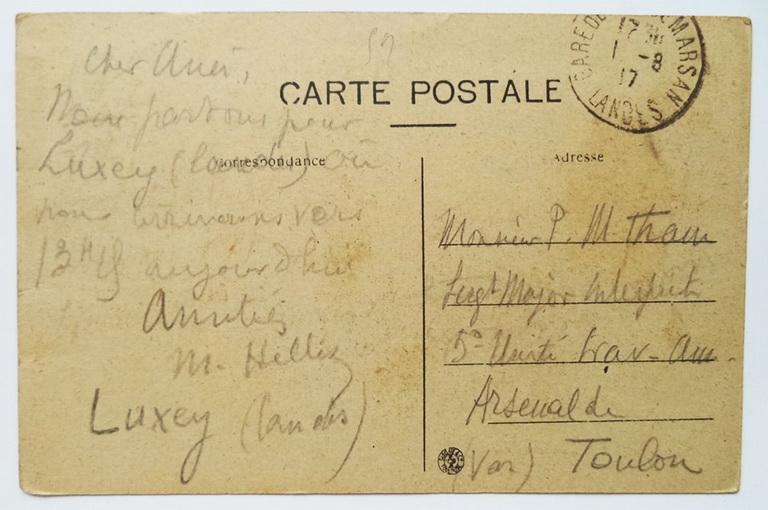 52
cher Ami,
CARTE POSTALE
GARE DE MARSAN
1 -8
17
LANDES
Nous partons pour
Correspondance
Luxey (landes) où
nous arriverons vers
13H 45 aujourd'hui
Amitiés
M. Hellis
Luxey (landes)
Adresse
Monsieur P. M. Tham
Sergt Major Interprète
5e Unité Trav- Am.
Arsenal de
(Var) Toulon